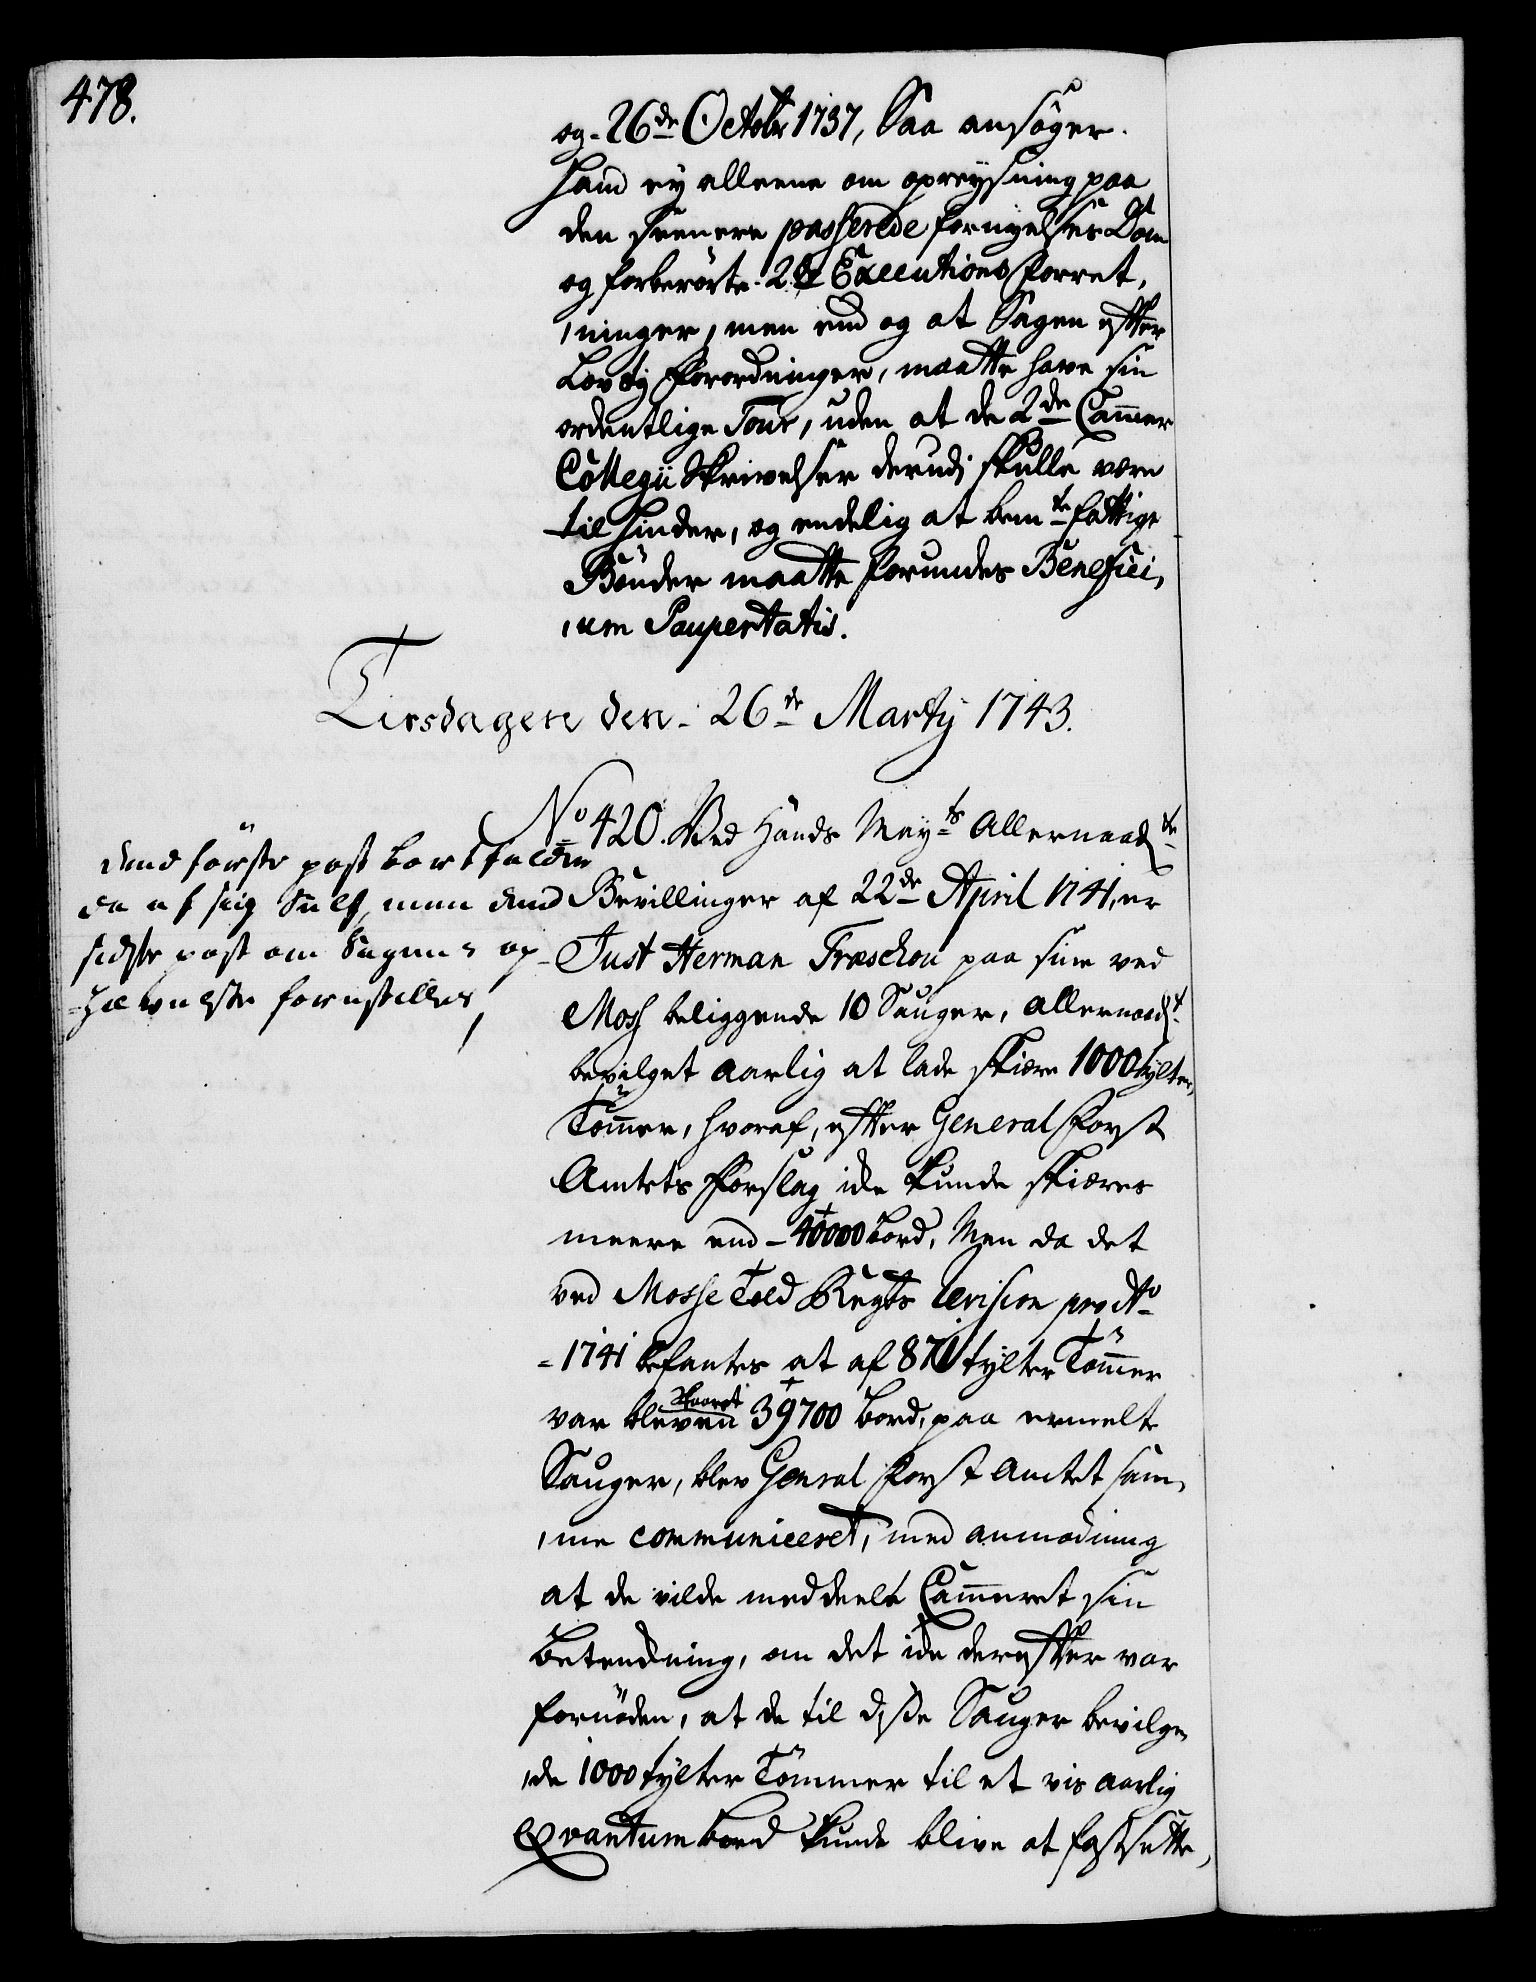 478.
og 26de Octobr 1737, Saa ansöger
hand ey alleene om opreysning paa
den seenere passerede fornyelses Dom
og forberörte 2de Executions forret,
,ninger, men end og at Sagen efter
Lov og forordninger, maatte have sin
ordentlige Tour, uden at de 2de Cam̄er
Collegii Skrivelser derudj skulle være
til hinder, og endelig at bemte fattige
Bönder maatte forundes Benefici,
,um Paupertatis.
Tirsdagen den 26de Martij 1743.
No 420. Ved Hands Mayts Allernaadte
Bevillinger af 22de April 1741, er
Just Herman Træschou paa sine ved
Moss beliggende 10 Sauger, allernaadt
bevilget aarlig at lade skiære 1000 tylter
Töm̄er, hvoraf, efter General forst
Amtets forslag icke kunde skiæres
meere end 40000 bord, Men da det
ved Mosse Told Regts revision pro Ao
1741 befantes at af 870 tylter Töm̄er
var bleven skaaret 39700 bord, paa ermelte
Sauger, blev General forst Amtet sam,
,me communiceret, med anmodning
at de vilde meddeele Cam̄eret sin
betenckning, om det icke derefter var
fornöden, at de til disse Sauger bevilge,
,de 1000 tylter Tömmer til et vis aarlig
Qvantum bord kunde blive at fastsætte,
dend förste post bortfalder
da af sig Self, men dend
sidste post om Sagens op-
hævelse forestilles,